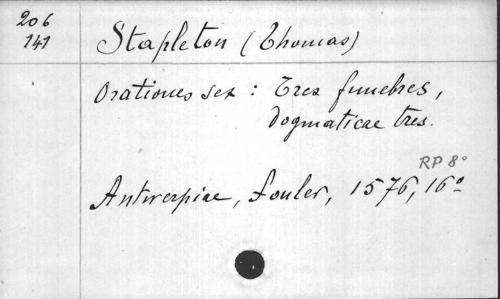 206
141
Stapleton (Thomas)
Orationes sex : Tres funebres,
dogmaticae tres.
RP 8°
Antverpiae, Fouler, 1576, 16°